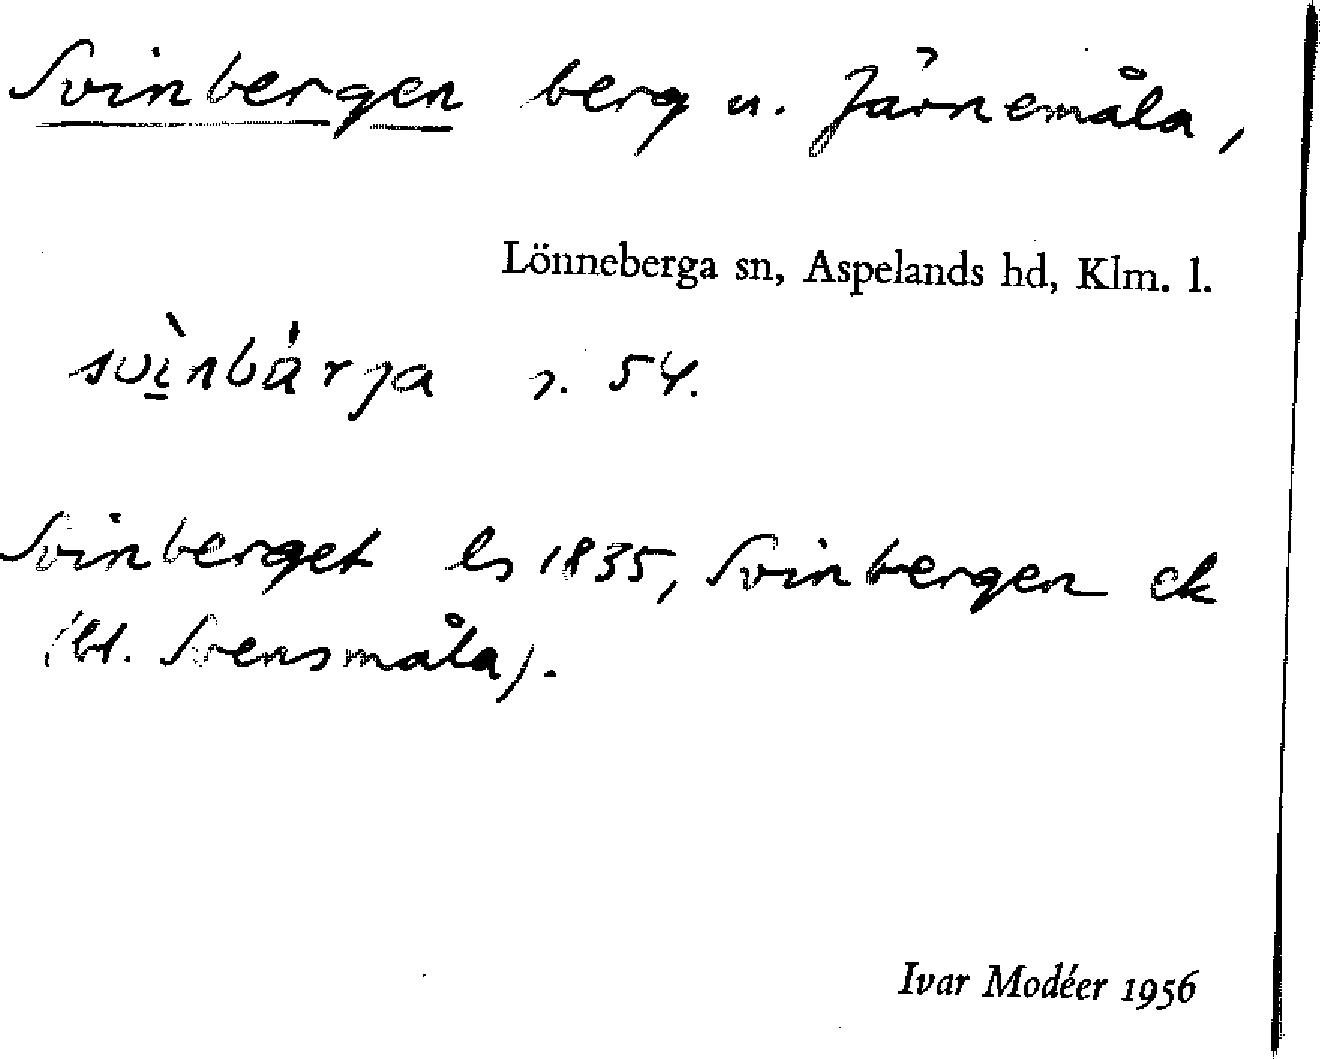 Svinbergen berg u. Järnemåla,
Lönneberga sn, Aspelands hd, Klm. l.
svì̱nbárja s. 54.
Svinberget ls 1835, Svinbergen ek
(bl. Svensmåla).
Ivar Modéer 1956